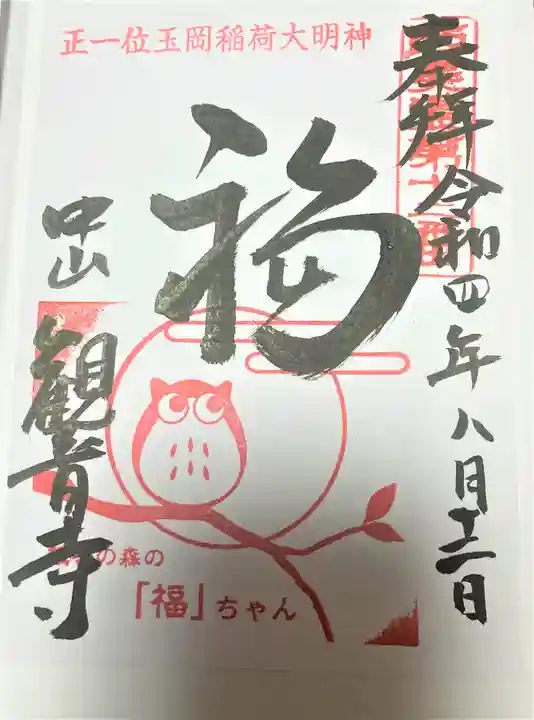 奉拝 令和四年八月十二日
正一位玉岡稲荷大明神
福
中山
観音寺
の森の
「福」ちゃん